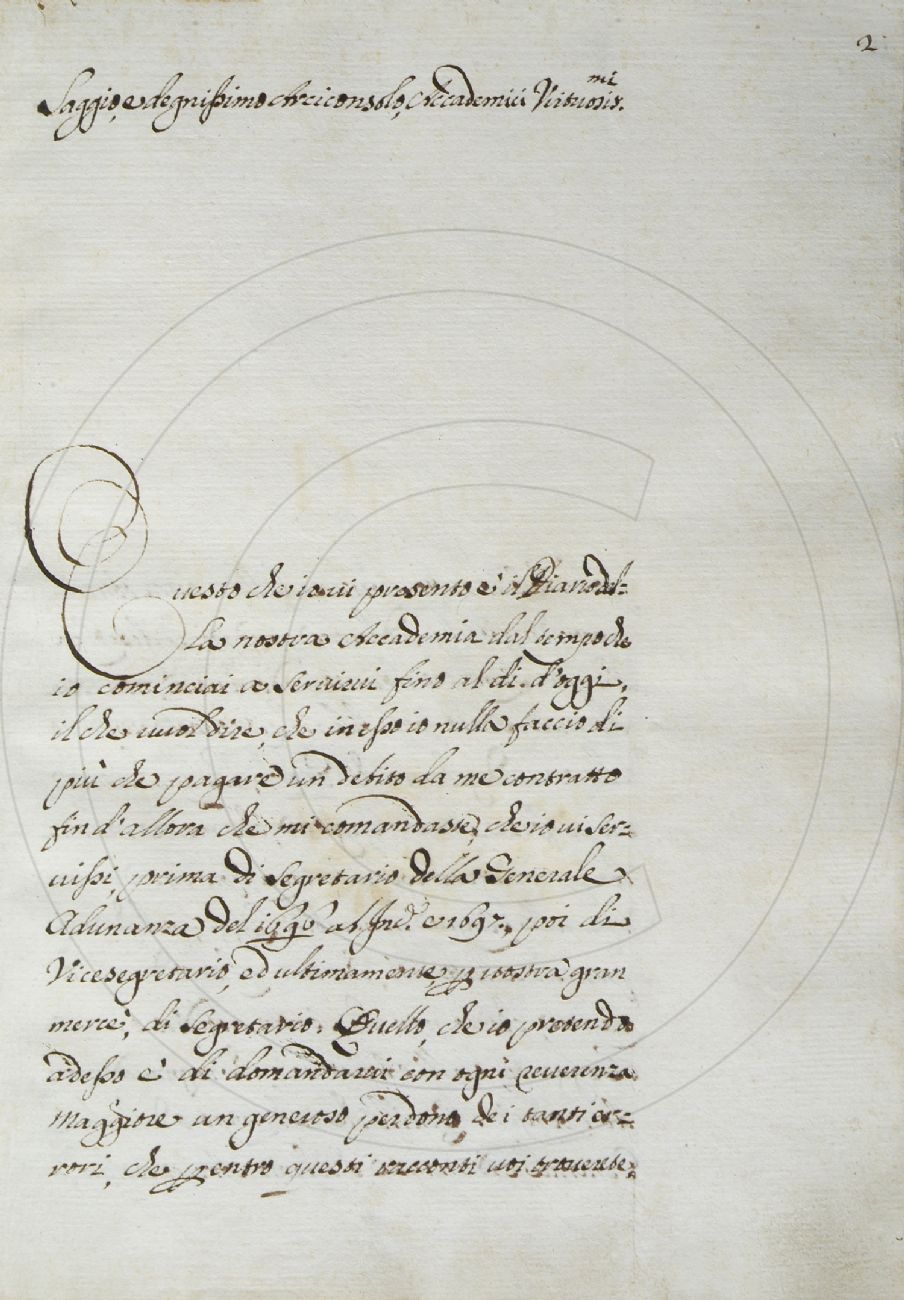 2
Saggio, e degnissimo Arciconsolo, Accademici Virtuosis.mi
Questo che io vi presento è il Diario del=
la nostra Accademia dal tempo che
io cominciai a servirvi fino al dì d'oggi,
il che vuol dire, che in esso io nulla faccio di
più che pagare un debito da me contratto
fin d'allora che mi comandaste, che io vi ser=
vissi, prima di Segretario della Generale
Adunanza del 1696 al Ind.e 1697., poi di
Vicesegretario, ed ultimamente, p vostra gran
mercè, di Segretario. Quello, che io pretendo
adesso è di domandarvi con ogni reverenza
maggiore un generoso perdono de i tanti er=
rori, che p entro questi racconti voi troverete,